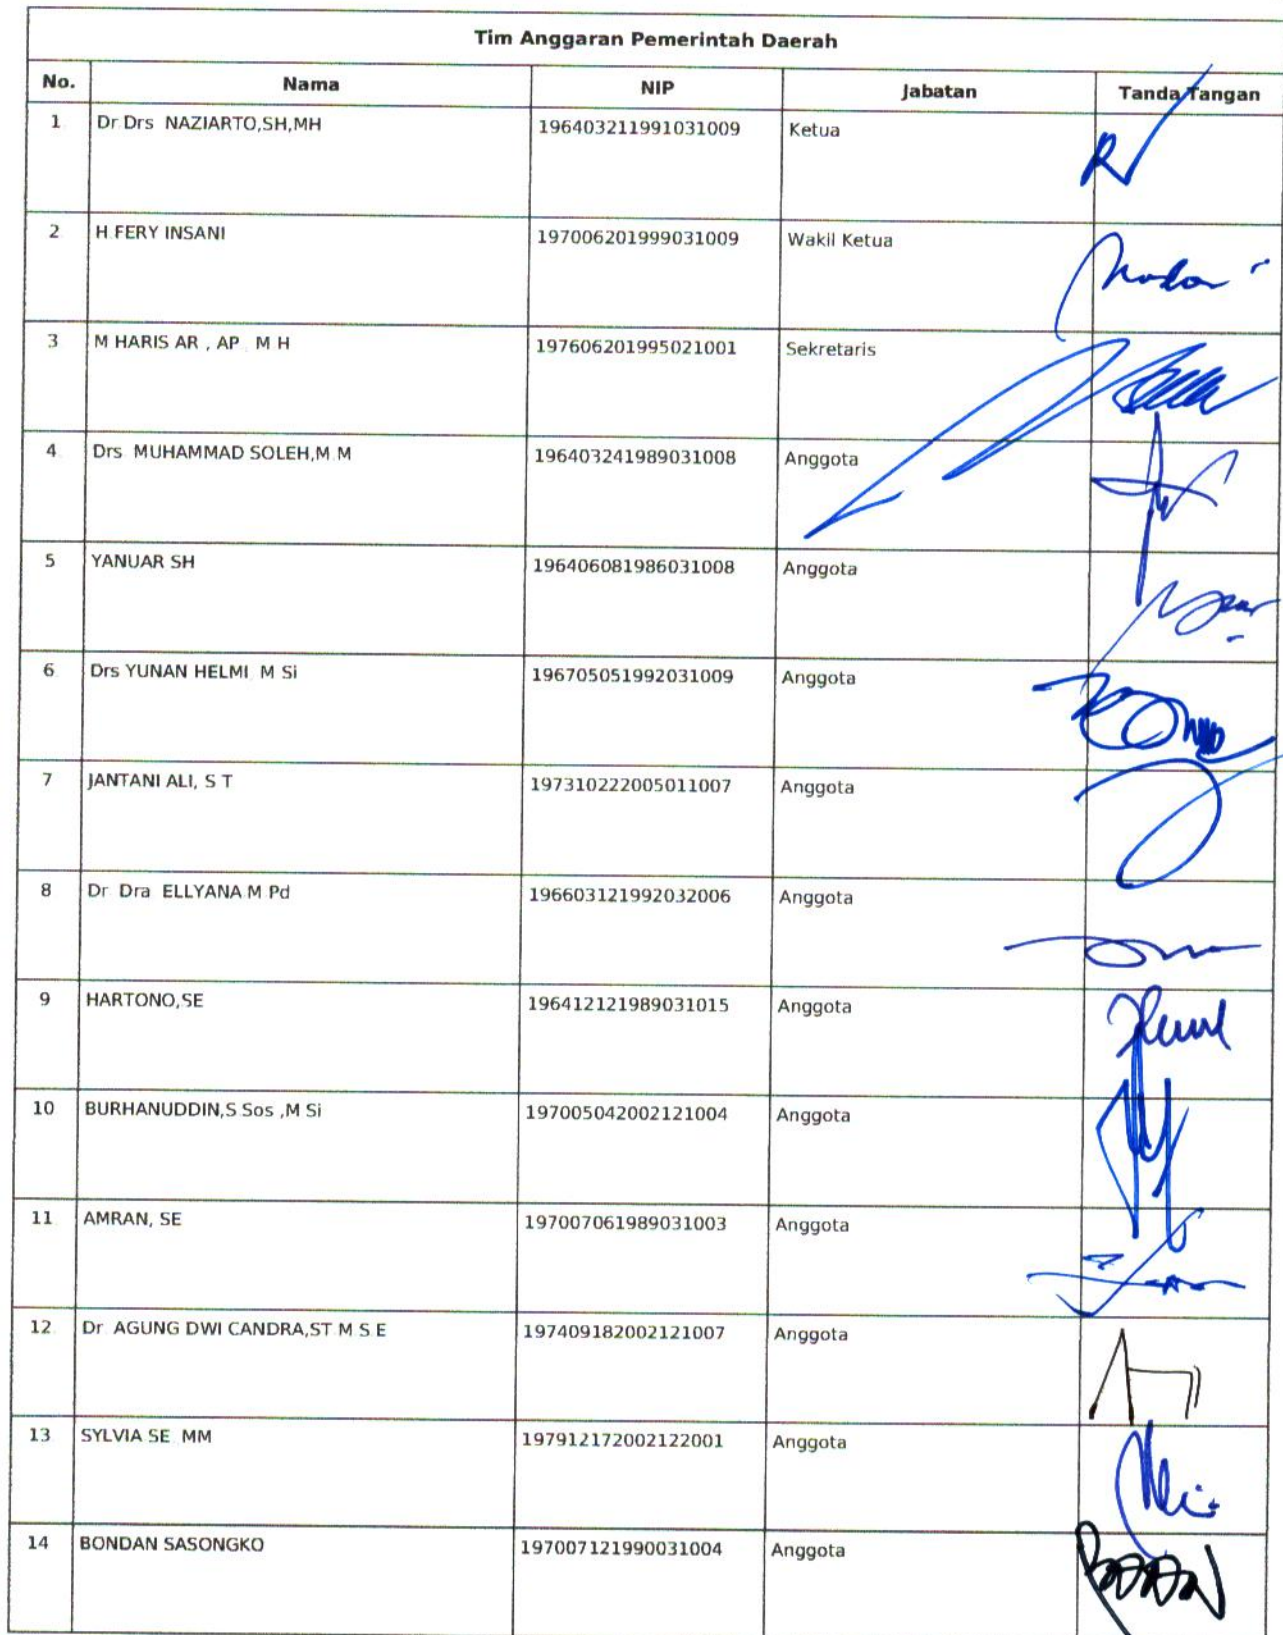 Tim Anggaran Pemerintah Daerah
No. Nama NIP Jabatan Tanda Tangan
1 Dr Drs NAZIARTO,SH,MH 196403211991031009 Ketua
2 H FERY INSANI 197006201999031009 Wakil Ketua
3 M HARIS AR , AP M H 197606201995021001 Sekretaris
4 Drs MUHAMMAD SOLEH,M M 196403241989031008 Anggota
5 YANUAR SH 196406081986031008 Anggota
6 Drs YUNAN HELMI M Si 196705051992031009 Anggota
7 JANTANI ALI, S T 197310222005011007 Anggota
8 Dr Dra ELLYANA M Pd 196603121992032006 Anggota
9 HARTONO,SE 196412121989031015 Anggota
10 BURHANUDDIN,S Sos ,M Si 197005042002121004 Anggota
11 AMRAN, SE 197007061989031003 Anggota
12 Dr AGUNG DWI CANDRA,ST M S E 197409182002121007 Anggota
13 SYLVIA SE MM 197912172002122001 Anggota
14 BONDAN SASONGKO 197007121990031004 Anggota